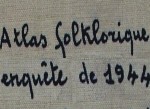 Atlas folklorique
enquête de 1944